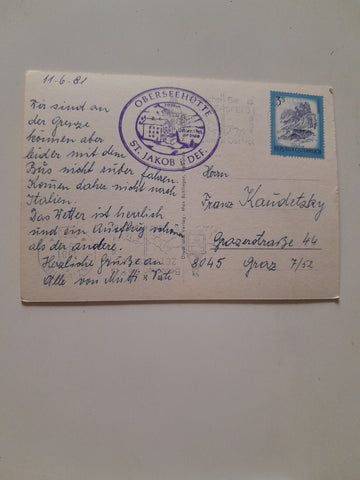 11.6.81
Wir sind an
der Grenze
können aber
leider mit dem
Bus nicht rüber fahren.
Kommen daher nicht nach
Italien.
Das Wetter ist herrlich
und ein Ausflug schöner
als der andere.
Herzliche Grüße an
Alle von Mutti
OBERSEEHÜTTE
ST. JAKOB i. DEF.
3S
REPUBLIK ÖSTERREICH
Herrn
Franz Kaudetzky
Grazerstraße 44
8045 Graz 7/52